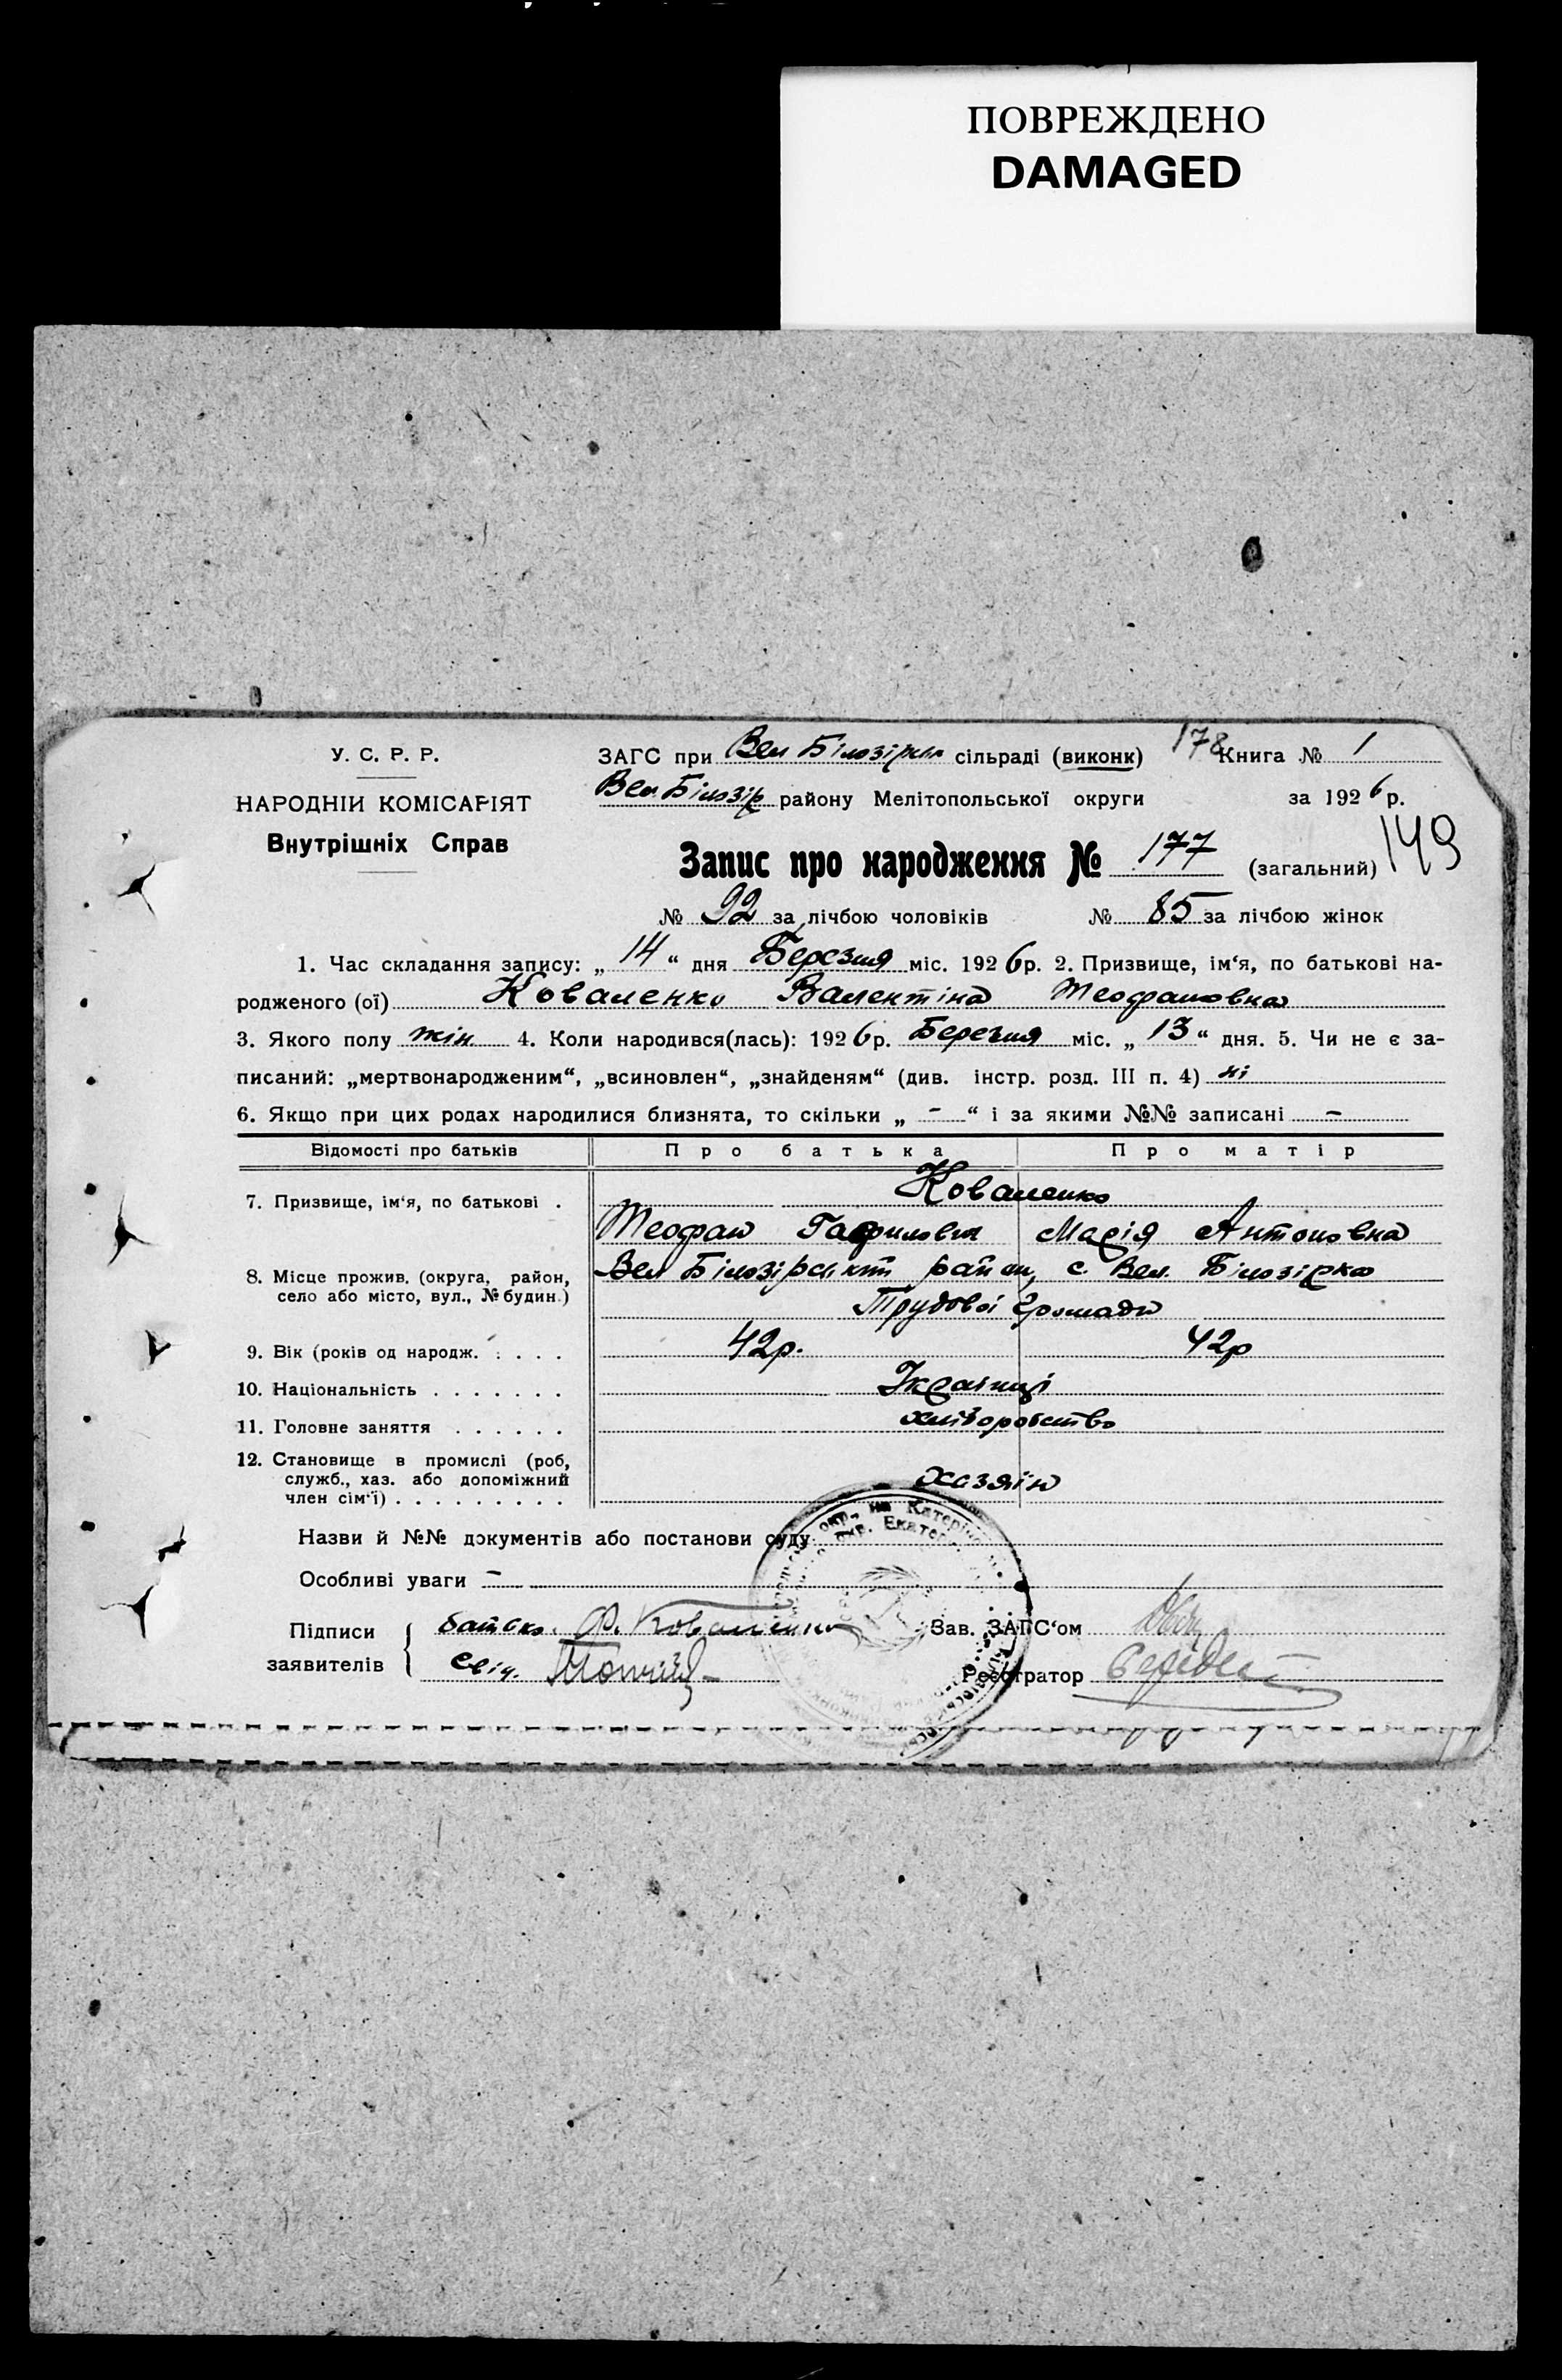 ПОВРЕЖДЕНО
DAMAGED
У. С. Р. Р.
НАРОДНІЙ КОМІСАРІЯТ
Внутрішніх Справ
ЗАГС при Вел Білозірськ сільраді (виконк) 178 Книга № 1
Вел. Білозір району Мелітопольської округи за 1926 р.
Запис про народження № 177 (загальний) 149
№ 92 за лічбою чоловіків № 85 за лічбою жінок
1. Час складання запису: „ 14 “ дня Березня міс. 1926 р. 2. Призвище, ім‘я, по батькові на-
родженого (ої) Коваленко Валентіна Теофановна
3. Якого полу жін 4. Коли народився(лась): 1926 р. Березня міс. „ 13 “ дня. 5. Чи не є за-
писаний: „мертвонародженим“, „всиновлен“, „знайденям“ (див. інстр. розд. III п. 4) ні
6. Якщо при цих родах народилися близнята, то скільки „ - “ і за якими №№ записані -
Відомості про батьків Про батька Про матір
7. Призвище, ім‘я, по батькові . Коваленко
Теофан Гаврилович Марія Антоновна
8. Місце прожив. (округа, район, село або місто, вул., № будин.) Вел Білозірськ район, с. Вел. Білозірка
Трудової Громади
9. Вік (років од народж. . . . . 42р. 42р
10. Національність . . . . . . . Українці
11. Головне заняття . . . . . . хліборобство
12. Становище в промислі (роб, служб., хаз. або допоміжний член сім‘ї) . . . . . . . . . хазяїн
Назви й №№ документів або постанови суду
Особливі уваги -
Підписи батько. Ф. Коваленко Зав. ЗАГС‘ом
заявителів свід. Реєстратор